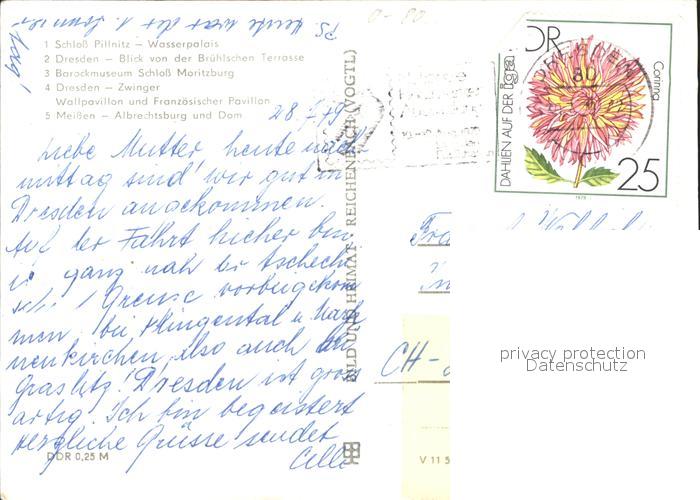 PS. heute war der 1. Sommer-
tag!
1 Schloß Pillnitz – Wasserpalais
2 Dresden – Blick von der Brühlschen Terrasse
3 Barockmuseum Schloß Moritzburg
4 Dresden – Zwinger
Wallpavillon und Französischer Pavillon
5 Meißen – Albrechtsburg und Dom
28.7.79
Liebe Mutter, heute nach-
mittag sind wir gut in
Dresden angekommen.
Auf der Fahrt hieher bin
ich ganz nah der tschechi-
schen Grenze vorbeigekom
men, bei Klingental u. Mark
neukirchen, also auch an
Graslitz! Dresden ist gross
artig. Ich bin begeistert
herzliche Grüsse sendet
DDR 0,25 M
BILD UND HEIMAT, REICHENBACH (VOGTL)
V 11 5
DDR
DAHLIEN AUF DER
Corinna
25
1979
80
Fra
in
CH-
privacy protection
Datenschutz